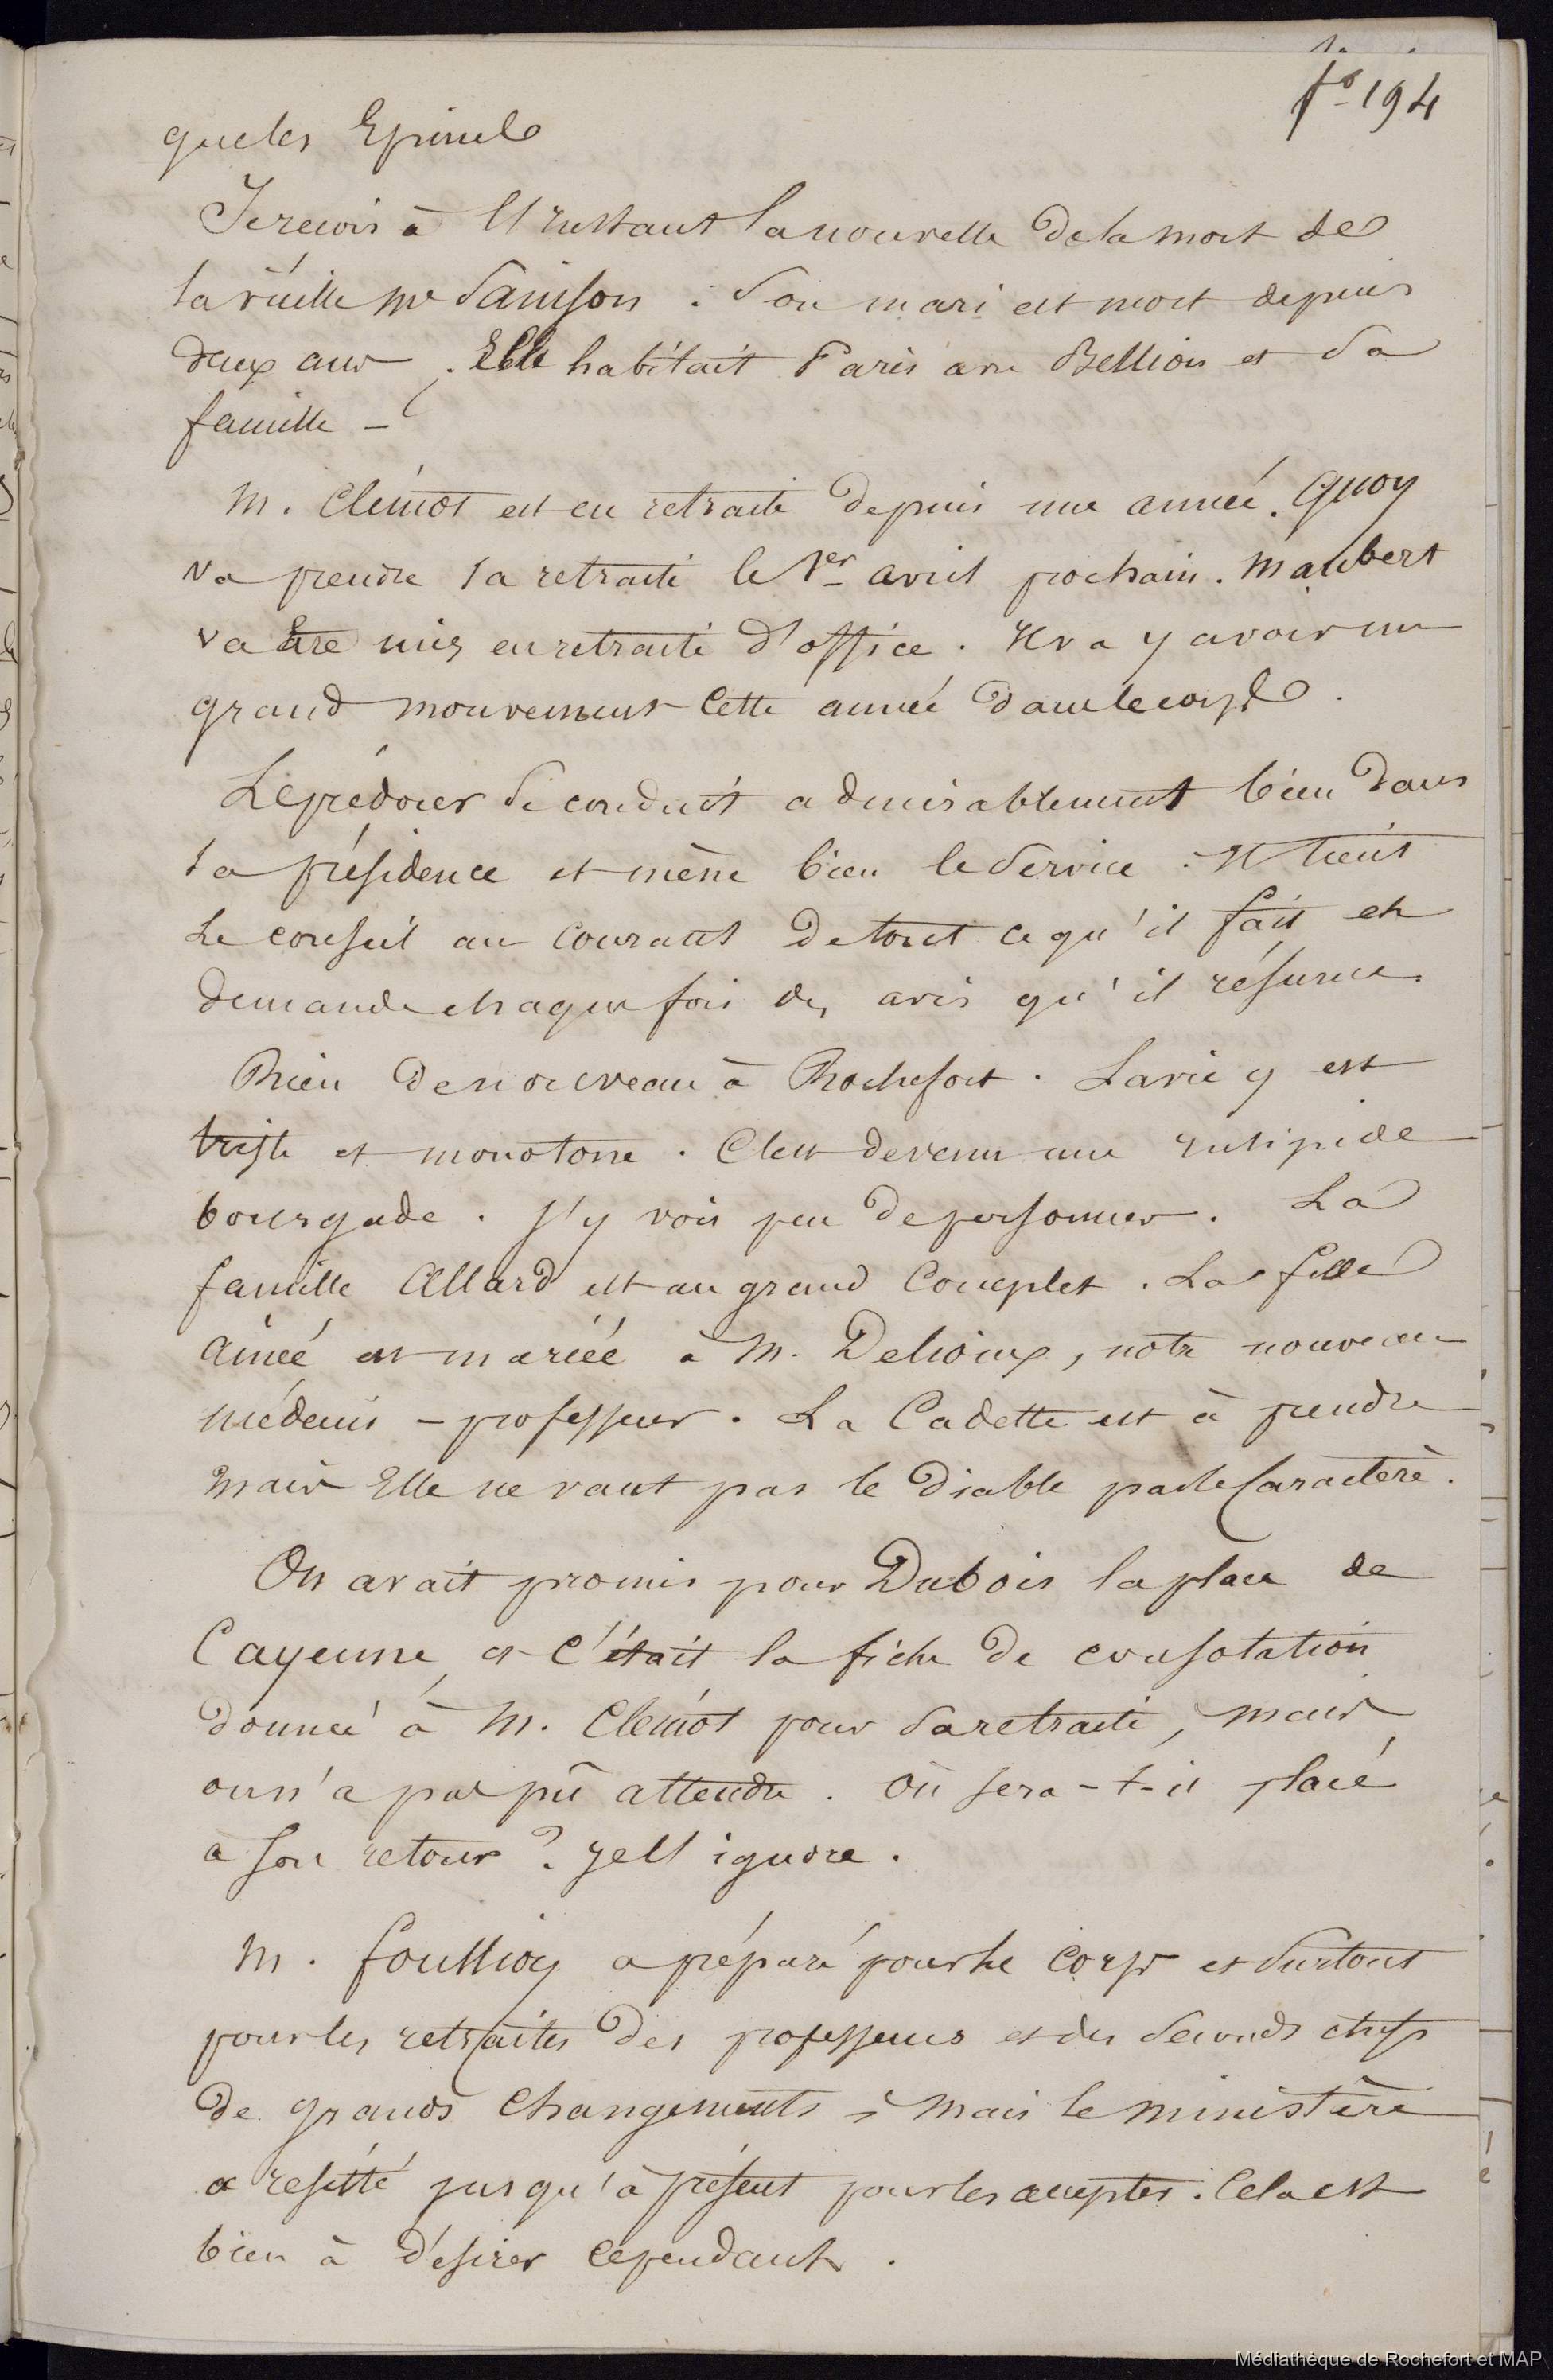 fo 194
que les Epinels
Je reçois à l'instant la nouvelle de la mort de
la vieille Me Sanson. Son mari est mort depuis
deux ans. Elle habitait Paris avec Bellion et sa
famille -
M. Clémot est en retraite depuis une année. Quoy
va prendre sa retraite le 1er avril prochain. Maubert
va être mis en retraite d'office. Il va y avoir un
grand mouvement cette année dans le corps.
Leprédour se conduit admirablement bien dans
sa présidence et mène bien le Service. Il tient
le conseil au courant de tout ce qu'il fait et
demande chaque fois des avis qu'il résume.
Rien de nouveau à Rochefort. La vie y est
triste et monotone. C'est devenu une insipide
bourgade. J'y vois peu de personnes. La
famille Allard est au grand Complet. La fille
ainée est mariée à M. Delioux, notre nouveau
médecin - professeur. La Cadette est à prendre
mais Elle ne vaut pas le Diable par le Caractère.
On avait promis pour Dubois la place de
Cayenne, et c'était la fiche de consolation
donnée à M. Clémot pour sa retraite, mais
on n'a pas pû attendre. Où sera-t-il placé
a son retour ? Je l'ignore.
M. foullioy a préparé pour le Corps et surtout
pour les retraites des professeurs et des seconds chefs
de grands Changements ; mais le ministère
a résisté jusqu'à présent pour les accepter. Cela est
bien à désirer cependant.
Médiathèque de Rochefort et MAP